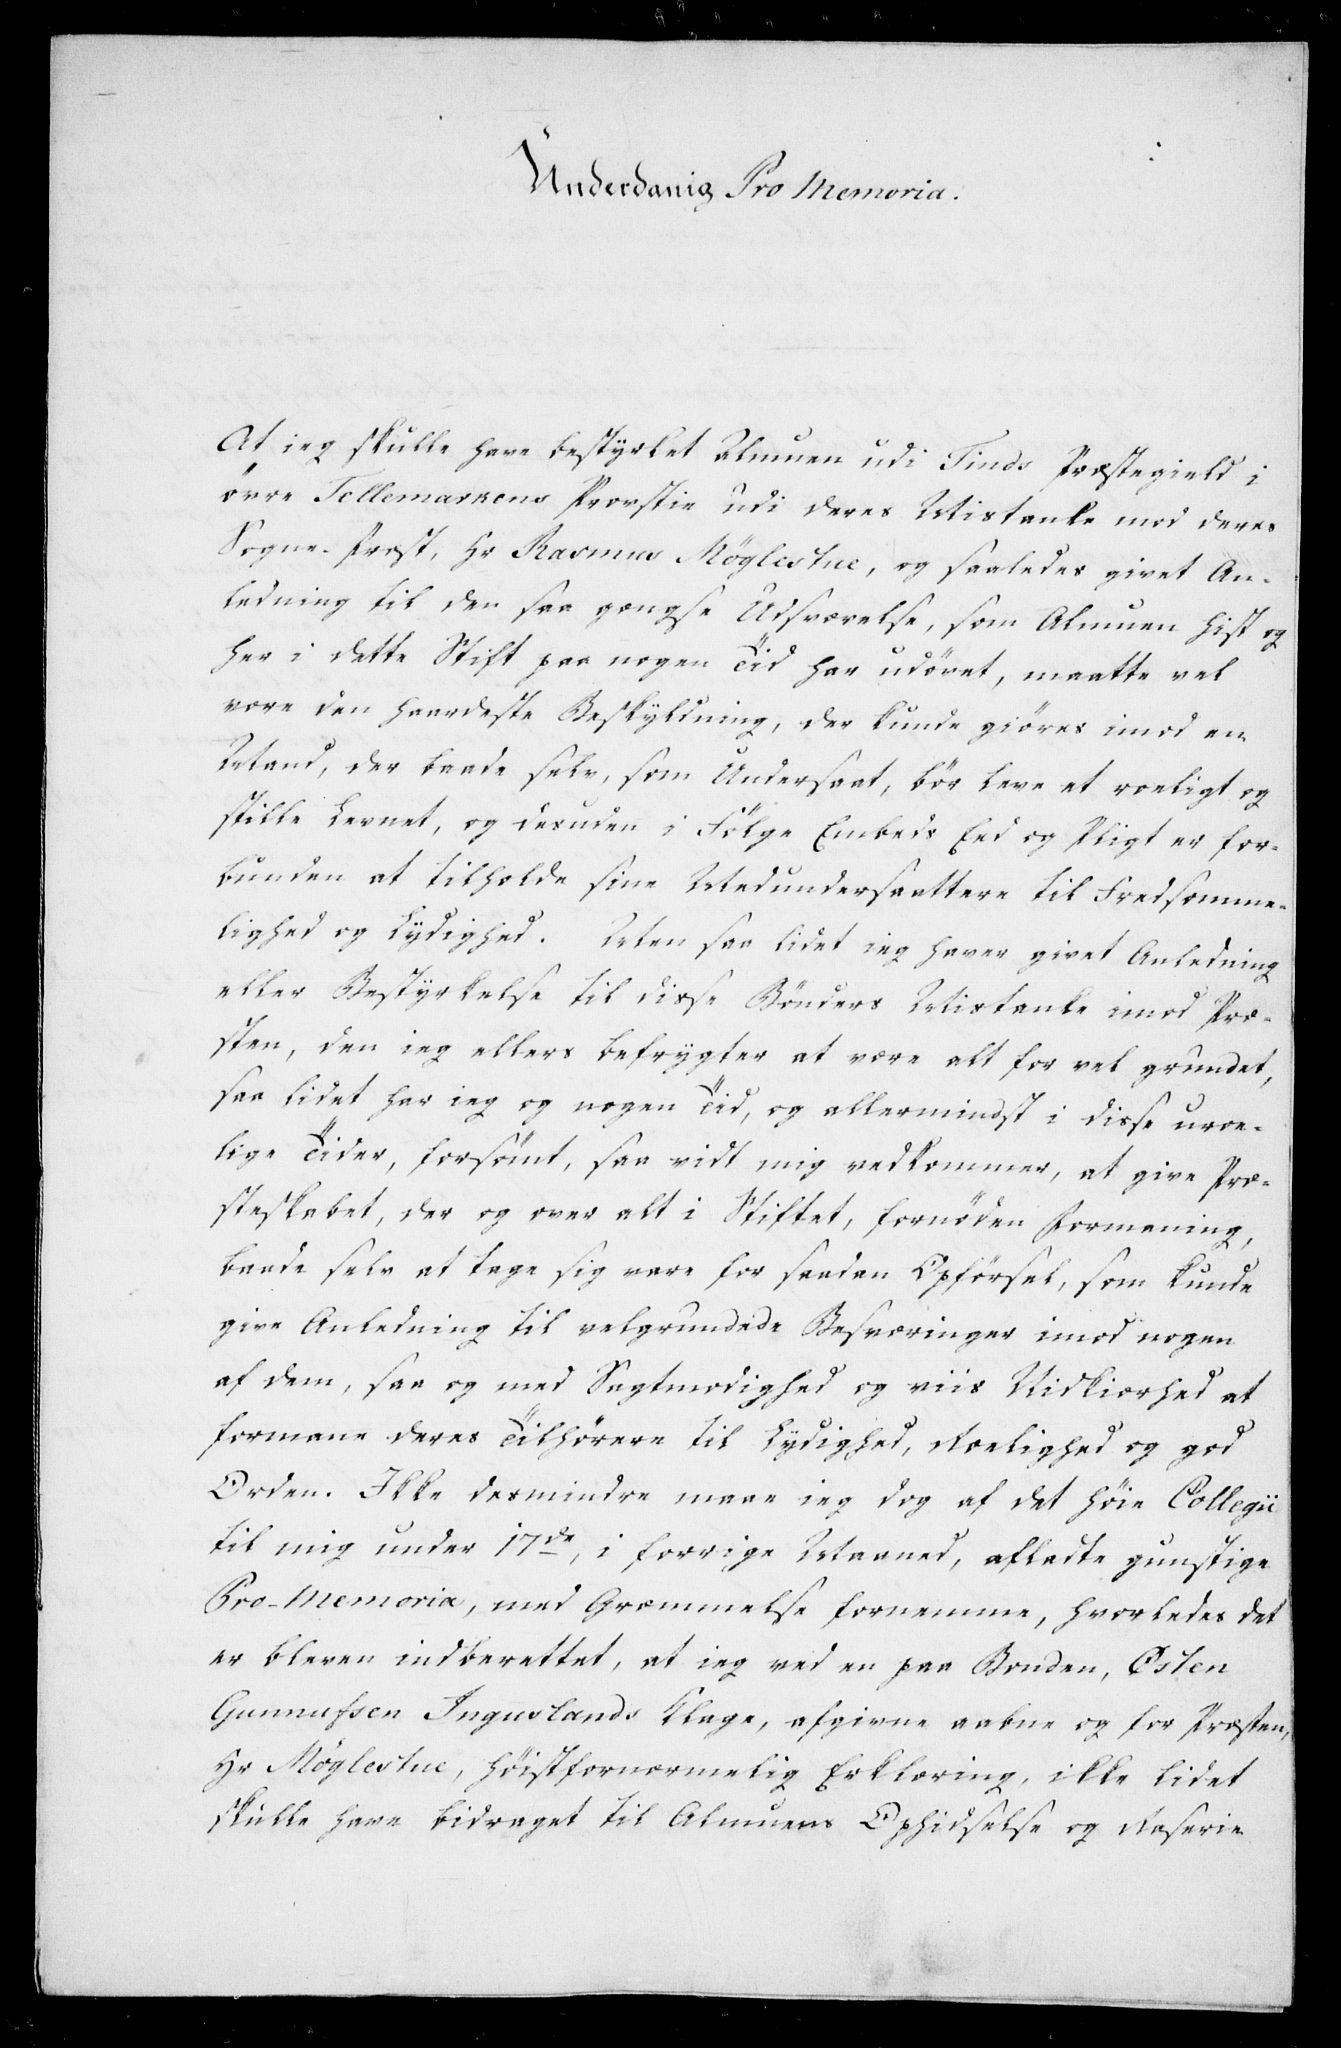 Underdanig Pro Memoria.
At ieg skulle have bestyrket Almuen udi Tinds Præstegield i
övre Tellemarkens Provstie udi deres Mistanke mod deres
Sogne-Præst, Hr Rasmus Möglestue, og saaledes givet An-
ledning til den saa gengse Udsvævelse, som Almuen hist og
her i dette Stift paa nogen Tid har udövet, maatte vel
være den haardeste Beskyldning, der kunde giöres imod en
Mand, der baade selv, som Undersaat, bör leve et roeligt og
stille Levnet, og desuden i Fölge Embeds Eed og Pligt er for-
bunden at tilholde sine Medundersaattere til Fredsomme-
lighed og Lydighed. Men saa lidet ieg haver givet Anledning
eller Bestyrkelse til disse Bönders Mistanke imod Præ-
sten, den ieg ellers befrygter at være alt for vel grundet,
saa lidet har ieg og nogen Tid, og allermindst i disse uroe-
lige Tider, forsömt, saa vidt mig vedkommer, at give Præ-
steskabet, der og over alt i Stiftet, fornöden Formaning,
baade selv at tage sig vare for saadan Opförsel, som kunde
give Anledning til velgrundede Besværinger imod nogen
af dem, saa og med Sagtmodighed og viis Nidkiærhed at
formane deres Tilhörere til Lydighed, Roelighed og god
Orden. Ikke desmindre maae ieg dog af det höie Collegii
til mig under 17de, i forrige Maaned, afladte gunstige
Pro-Memoria, med Græmmelse fornemme, hvorledes det
er bleven indberettet, at ieg ved en paa Bonden, Østen
Gunnufsen Ingulands Klage, afgivne aabne og for Præsten,
Hr Möglestue, höistfornærmelig Erklæring, ikke lidet
skulle have bidraget til Almuens Ophidselse og Raserie